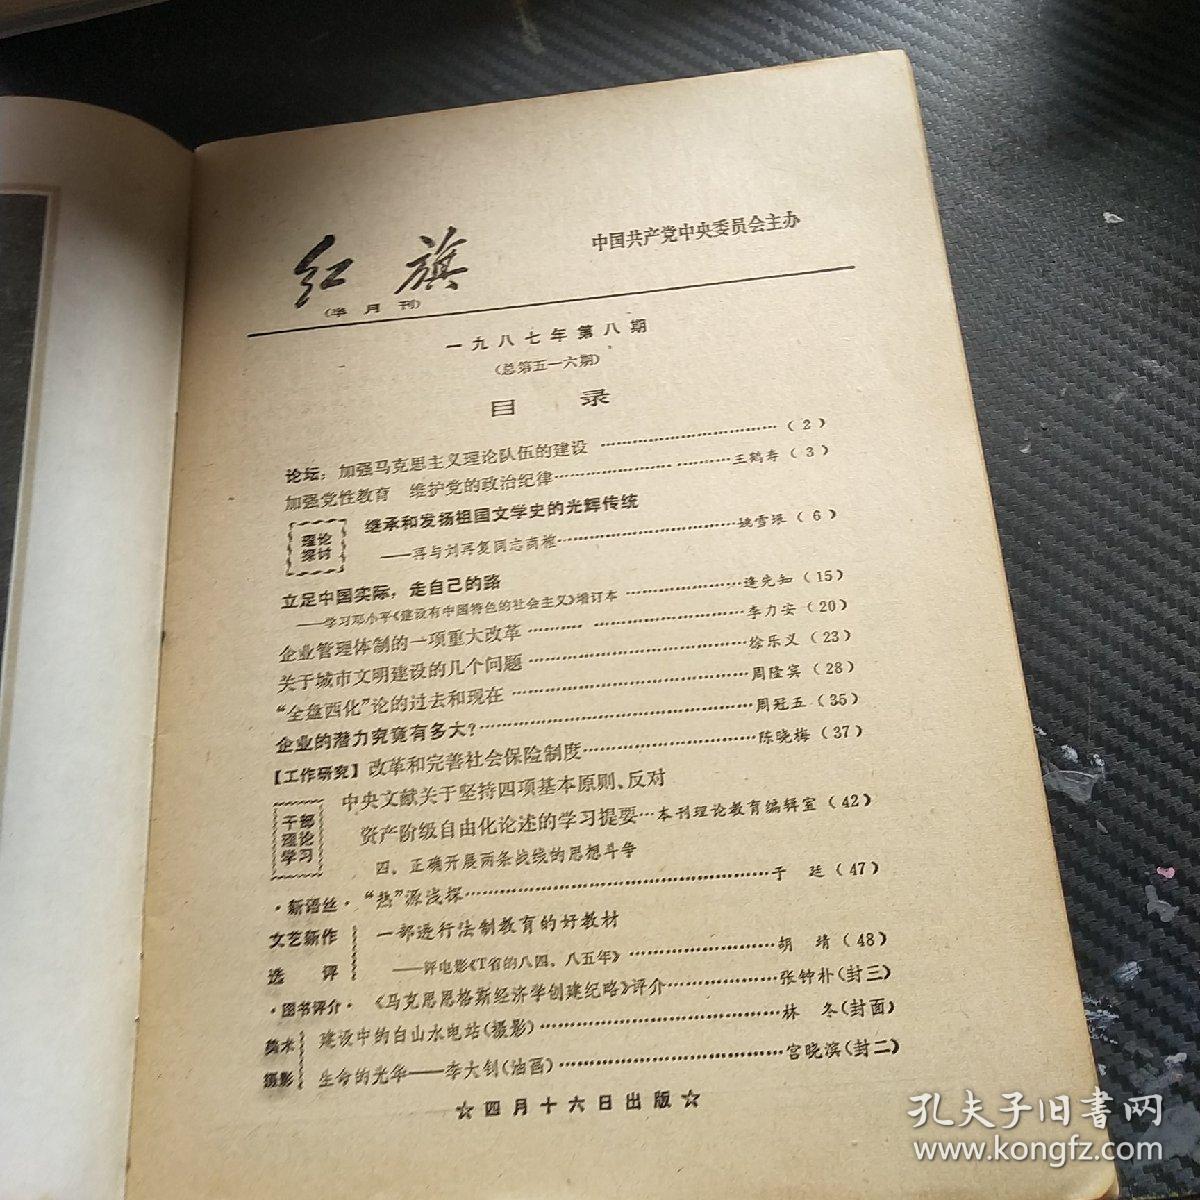 中国共产党中央委员会主办
红旗
(半月刊)
一九八七年第八期
(总第五一六期)
目录
论坛：加强马克思主义理论队伍的建设 …………(2)
加强党性教育 维护党的政治纪律…………王鹤寿(3)
理论探讨
继承和发扬祖国文学史的光辉传统
——再与刘再复同志商榷…………姚雪垠(6)
立足中国实际，走自己的路
——学习邓小平《建设有中国特色的社会主义》增订本…………逄先知(15)
企业管理体制的一项重大改革…………李力安(20)
关于城市文明建设的几个问题…………徐乐义(23)
“全盘西化”论的过去和现在…………周隆宾(28)
企业的潜力究竟有多大?…………周冠五(35)
【工作研究】改革和完善社会保险制度…………陈晓梅(37)
干部理论学习
中央文献关于坚持四项基本原则、反对
资产阶级自由化论述的学习提要…本刊理论教育编辑室(42)
四、正确开展两条战线的思想斗争
·新语丝·“热”源浅探…………于 廷(47)
文艺新作选评
一部进行法制教育的好教材
——评电影《T省的八四、八五年》…………胡 靖(48)
·图书评介·《马克思恩格斯经济学创建纪略》评介…………张钟朴(封三)
美术摄影
建设中的白山水电站(摄影)…………林 冬(封面)
生命的光华——李大钊(油画)…………宫晓滨(封二)
☆四月十六日出版☆
孔夫子旧书网
www.kongfz.com